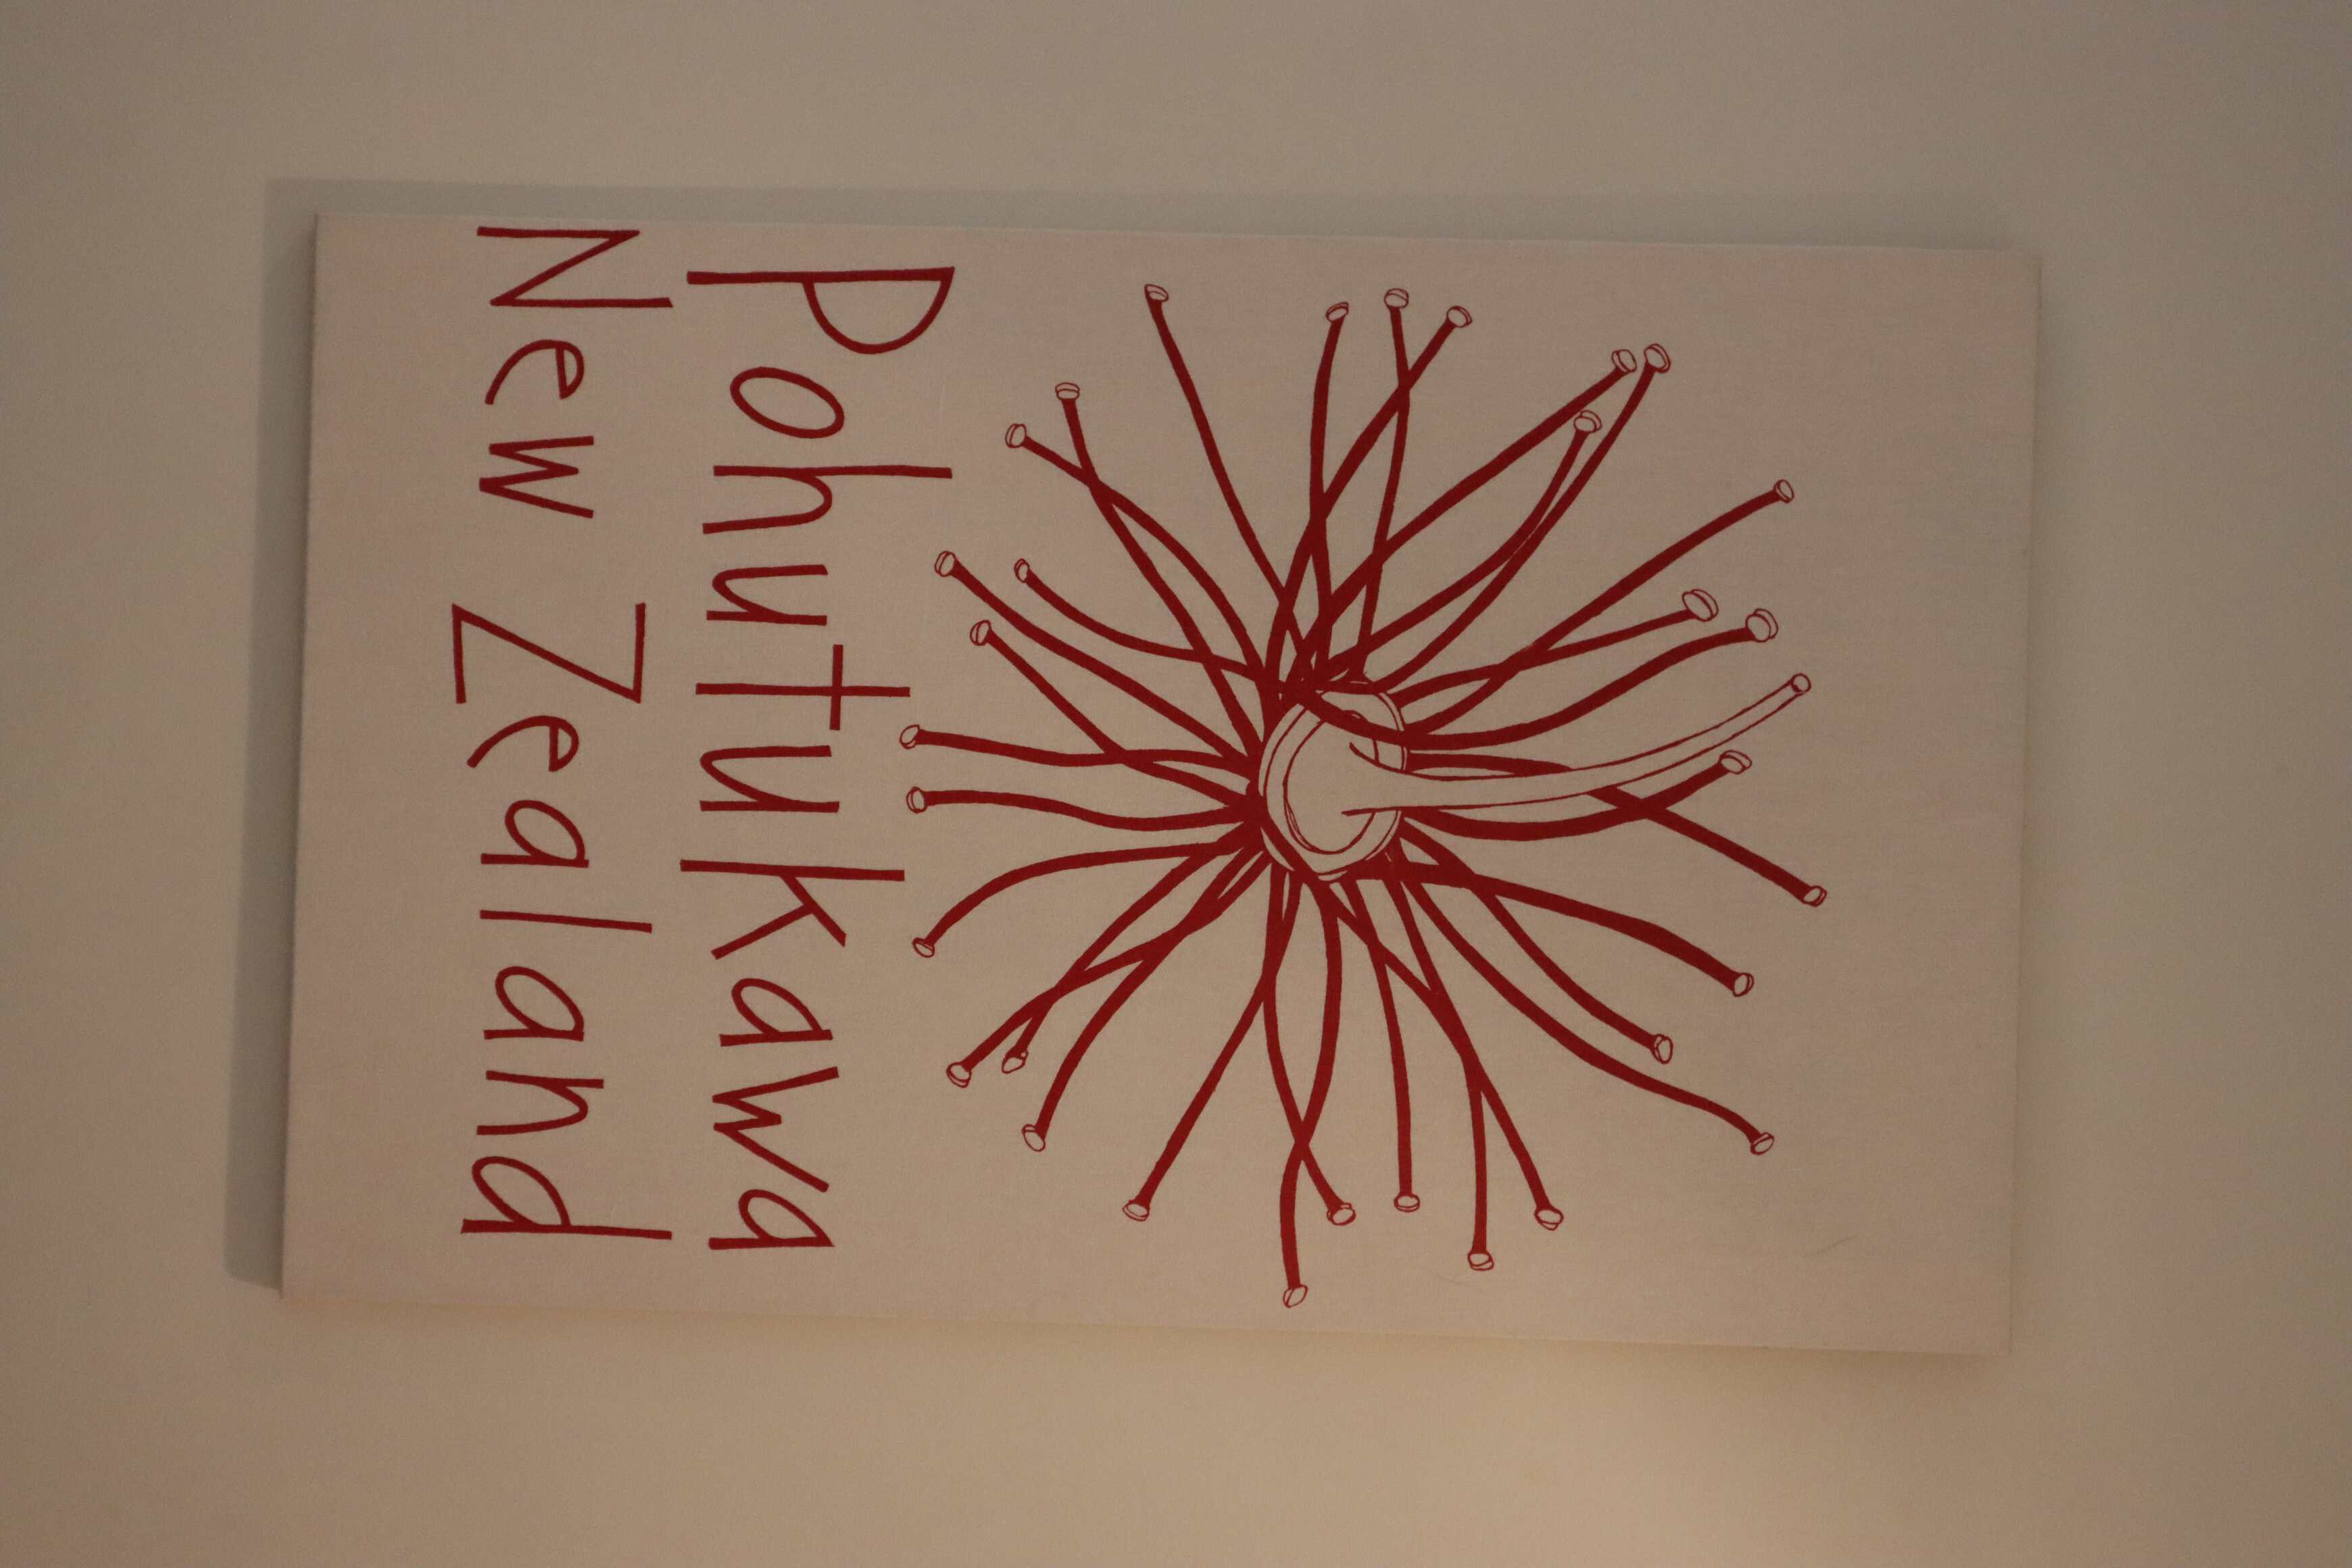 Pohutukawa
New Zealand